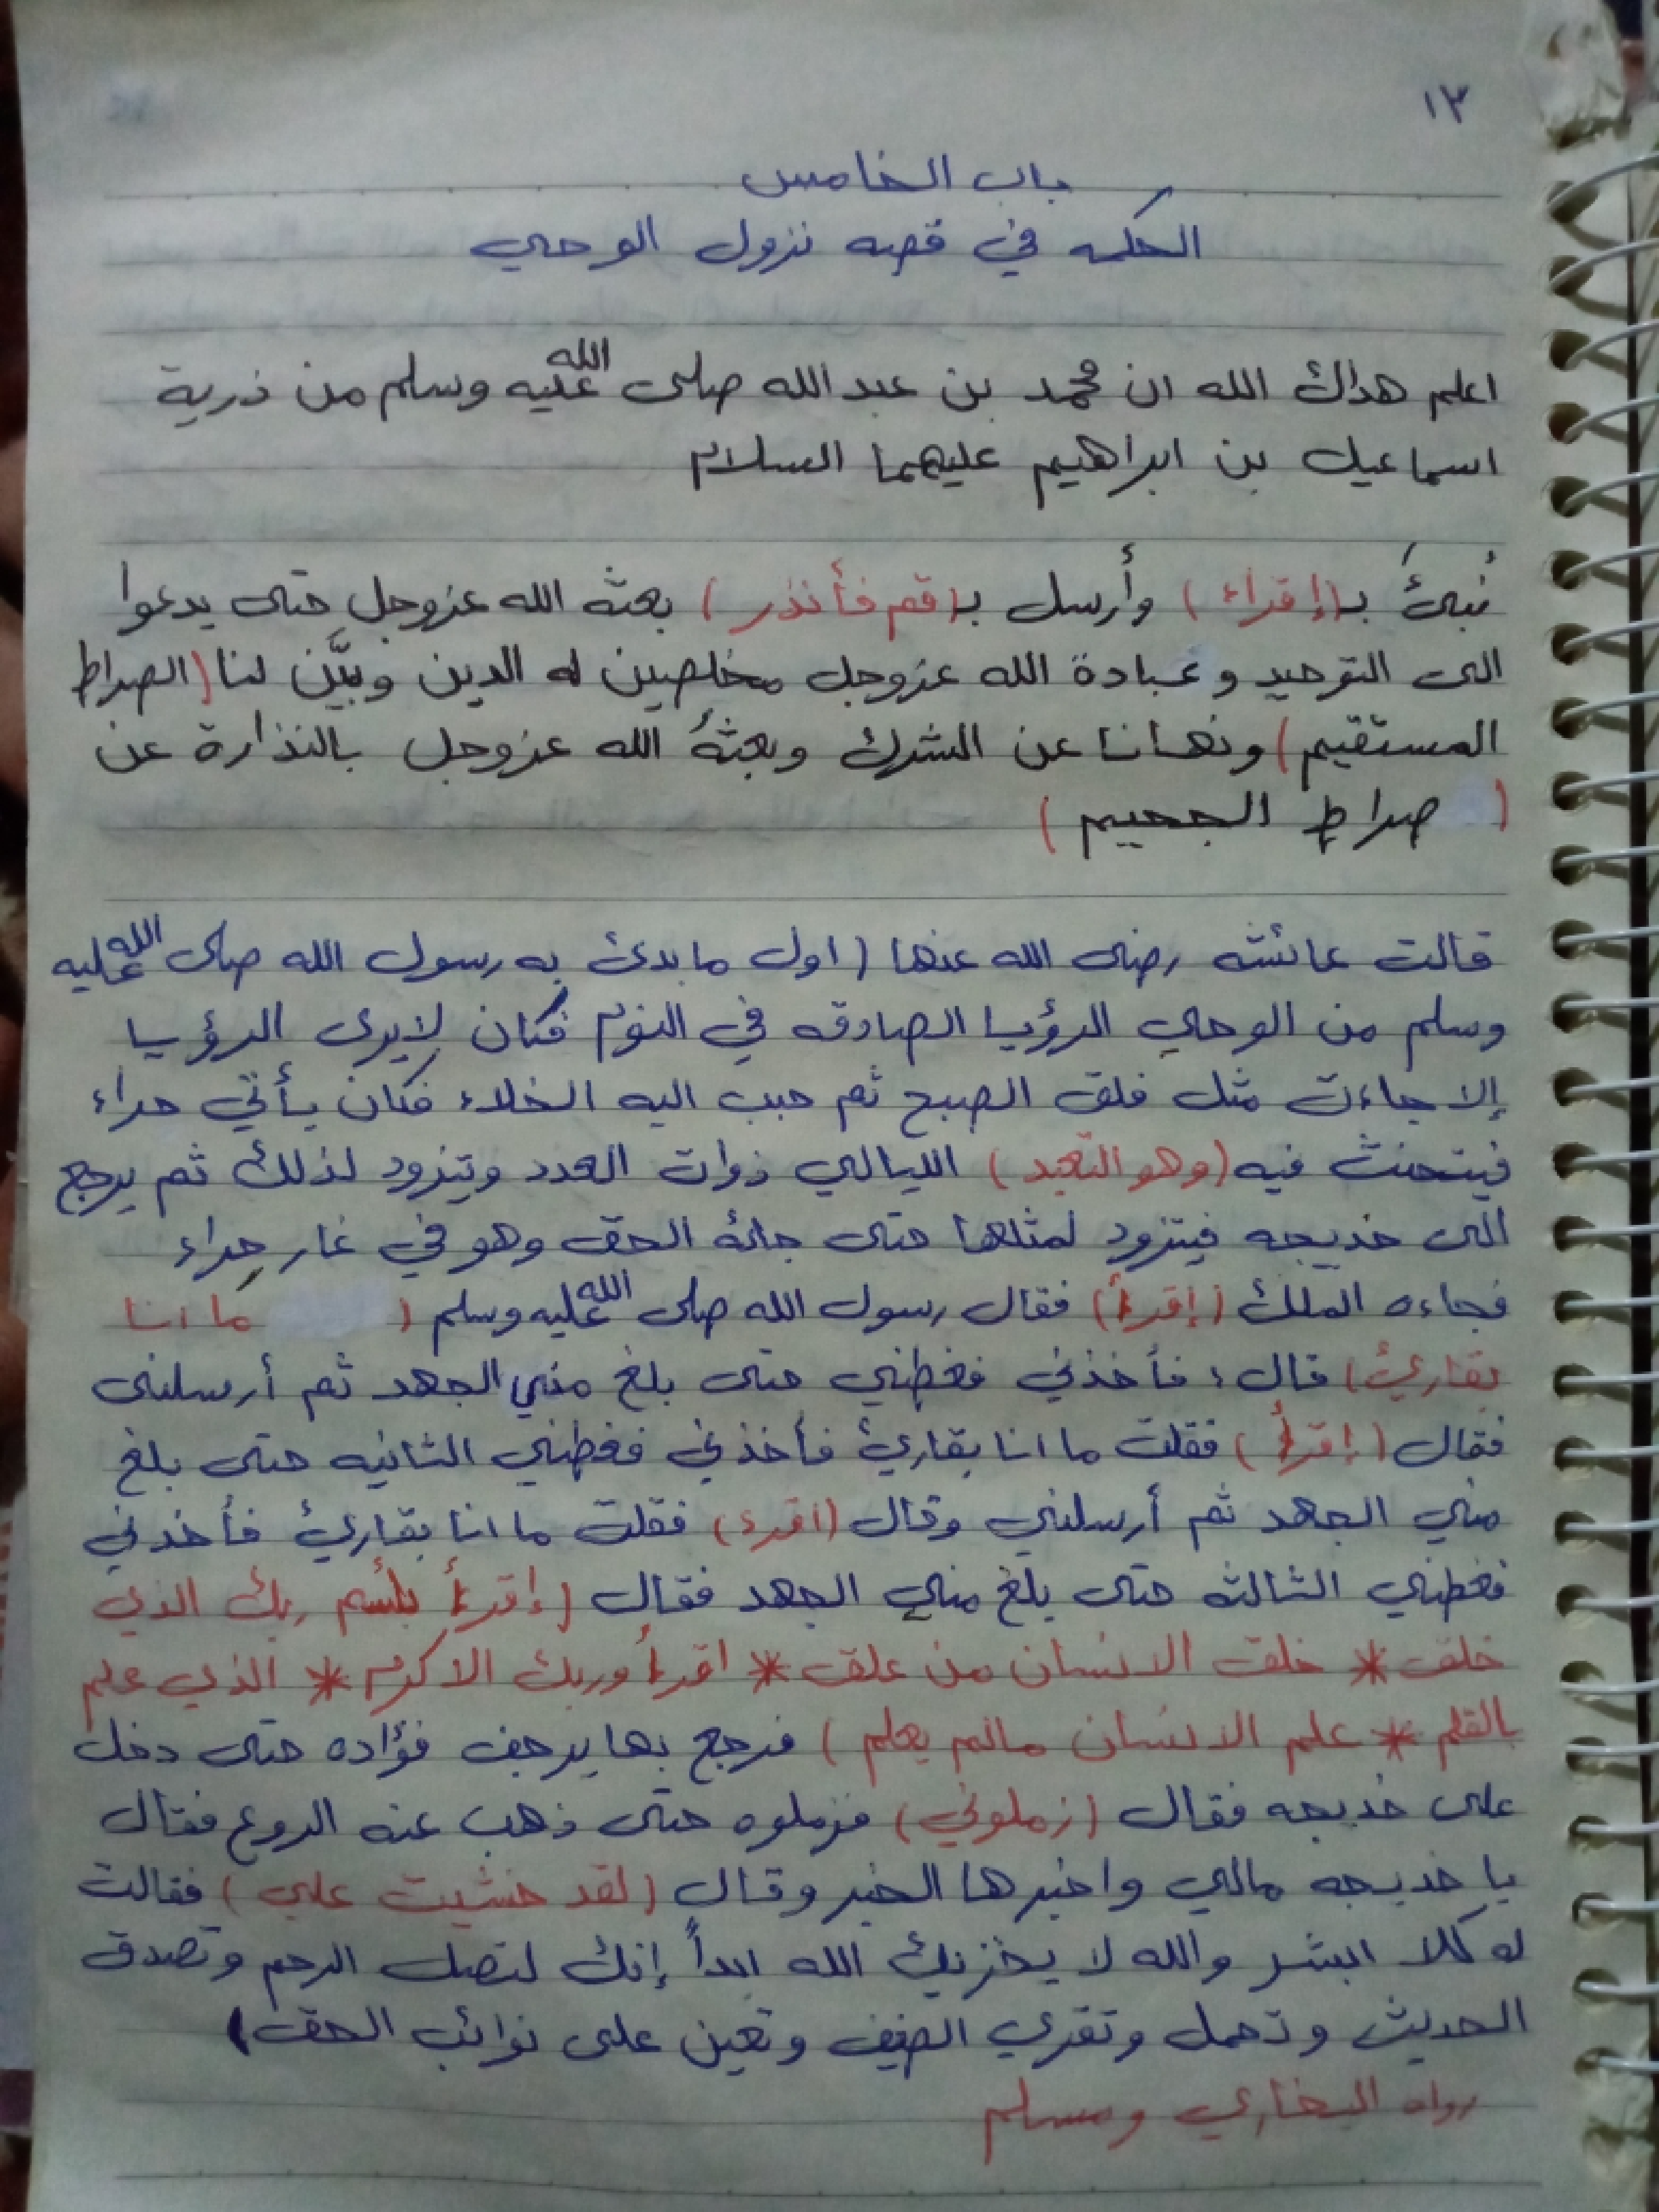 ١٣
باب الخامس
الحكمه في قصه نزول الوحي
اعلم هداك الله ان محمد بن عبدالله صلى الله عليه وسلم من ذرية
اسماعيل بن ابراهيم عليهما السلام
نُبئَ بـ(إقراء) وأرسل بـ(قم فأنذر) بعثه الله عزوجل حتى يدعوا
الى التوحيد وعبادة الله عزوجل مخلصين له الدين وبيَّن لنا (الصراط
المستقيم) ونهانا عن الشرك وبعثهُ الله عزوجل بالنذارة عن
(صراط الجحيم)
قالت عائشه رضى الله عنها (اول مابدئ به رسول الله صلى الله عليه
وسلم من الوحي الرؤيا الصادقه في النوم فكان لايرى الرؤيا
إلا جاءت مثل فلق الصبح ثم حبب اليه الخلاء فكان يأتي حراء
فيتحنث فيه (وهو التعبد) الليالي ذوات العدد ويتزود لذلك ثم يرجع
الى خديجه فيتزود لمثلها حتى جائه الحق وهو في غار حِراء
فجاءه الملك (إقرأ) فقال رسول الله صلى الله عليه وسلم (ما انا
بقارئ) قال: فأخذني فغطني حتى بلغ مني الجهد ثم أرسلنى
فقال (إقرأ) فقلت ما انا بقارئ فأخذني فغطني الثانيه حتى بلغ
مني الجهد ثم أرسلني وقال (اقرء) فقلت ما انا بقارئ فأخذني
فغطني الثالثه حتى بلغ مني الجهد فقال (إقرأ بأسم ربك الذي
خلق * خلق الانسان من علق * اقرأ وربك الاكرم * الذي علم
بالقلم * علم الانسان مالم يعلم) فرجع بها يرجف فؤاده حتى دخل
على خديجه فقال (زملوني) فزملوه حتى ذهب عنه الروع فقال
يا خديجه مالي واخبرها الخبر وقال (لقد خشيت علي) فقالت
له كلا ابشر والله لا يخزيك الله ابداً إنك لتصل الرحم وتصدق
الحديث وتحمل وتقري الضيف وتعين على نوائب الحق)
رواه البخاري ومسلم